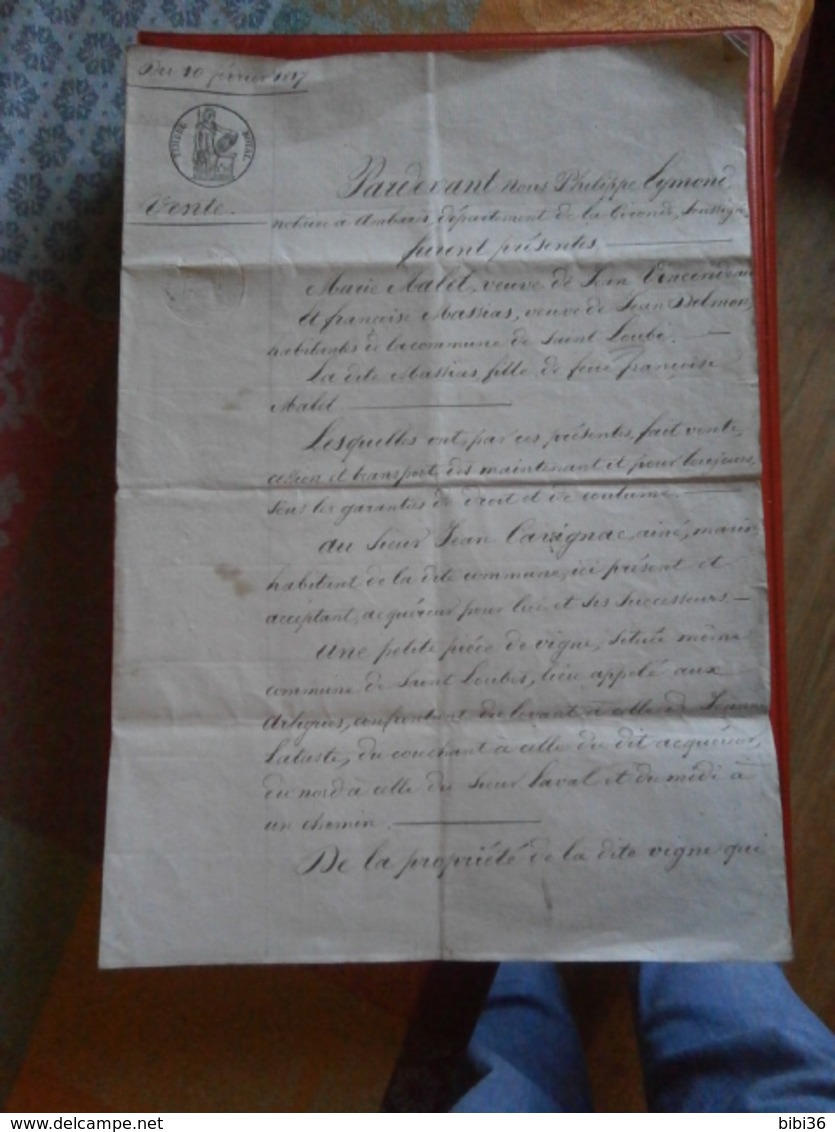 Du 10 février 1817
TIMBRE ROYAL
Vente.
Pardevant nous Philippe Eymond
notaire à Ambarès département de la Gironde, soussigné
furent présentes
Marie Malet, veuve de Jean Vincendeau
et françoise Massias, veuve de Jean Delmon,
habitantes de la commune de Saint Loubè.
La dite Massias fille de feue françoise
Malet
Lesquelles ont, par ces présentes, fait vente,
cession et transport, dès maintenant et pour toujours,
sous les garanties de droit et de coutume.
au Sieur Jean Cavignac, ainé, marin
habitant de la dite commune, ici présent et
acceptant, acquéreur pour lui et ses successeurs.
Une petite pièce de vigne, située même
commune de Saint Loubès, lieu appelé aux
Artigues, confrontant du levant à celle de Jeanne
Lataste, du couchant à celle du dit acquéreur,
du nord à celle du Sieur Laval et du midi à
un chemin.
De la propriété de la dite vigne qui
delcampe.net
bibi36